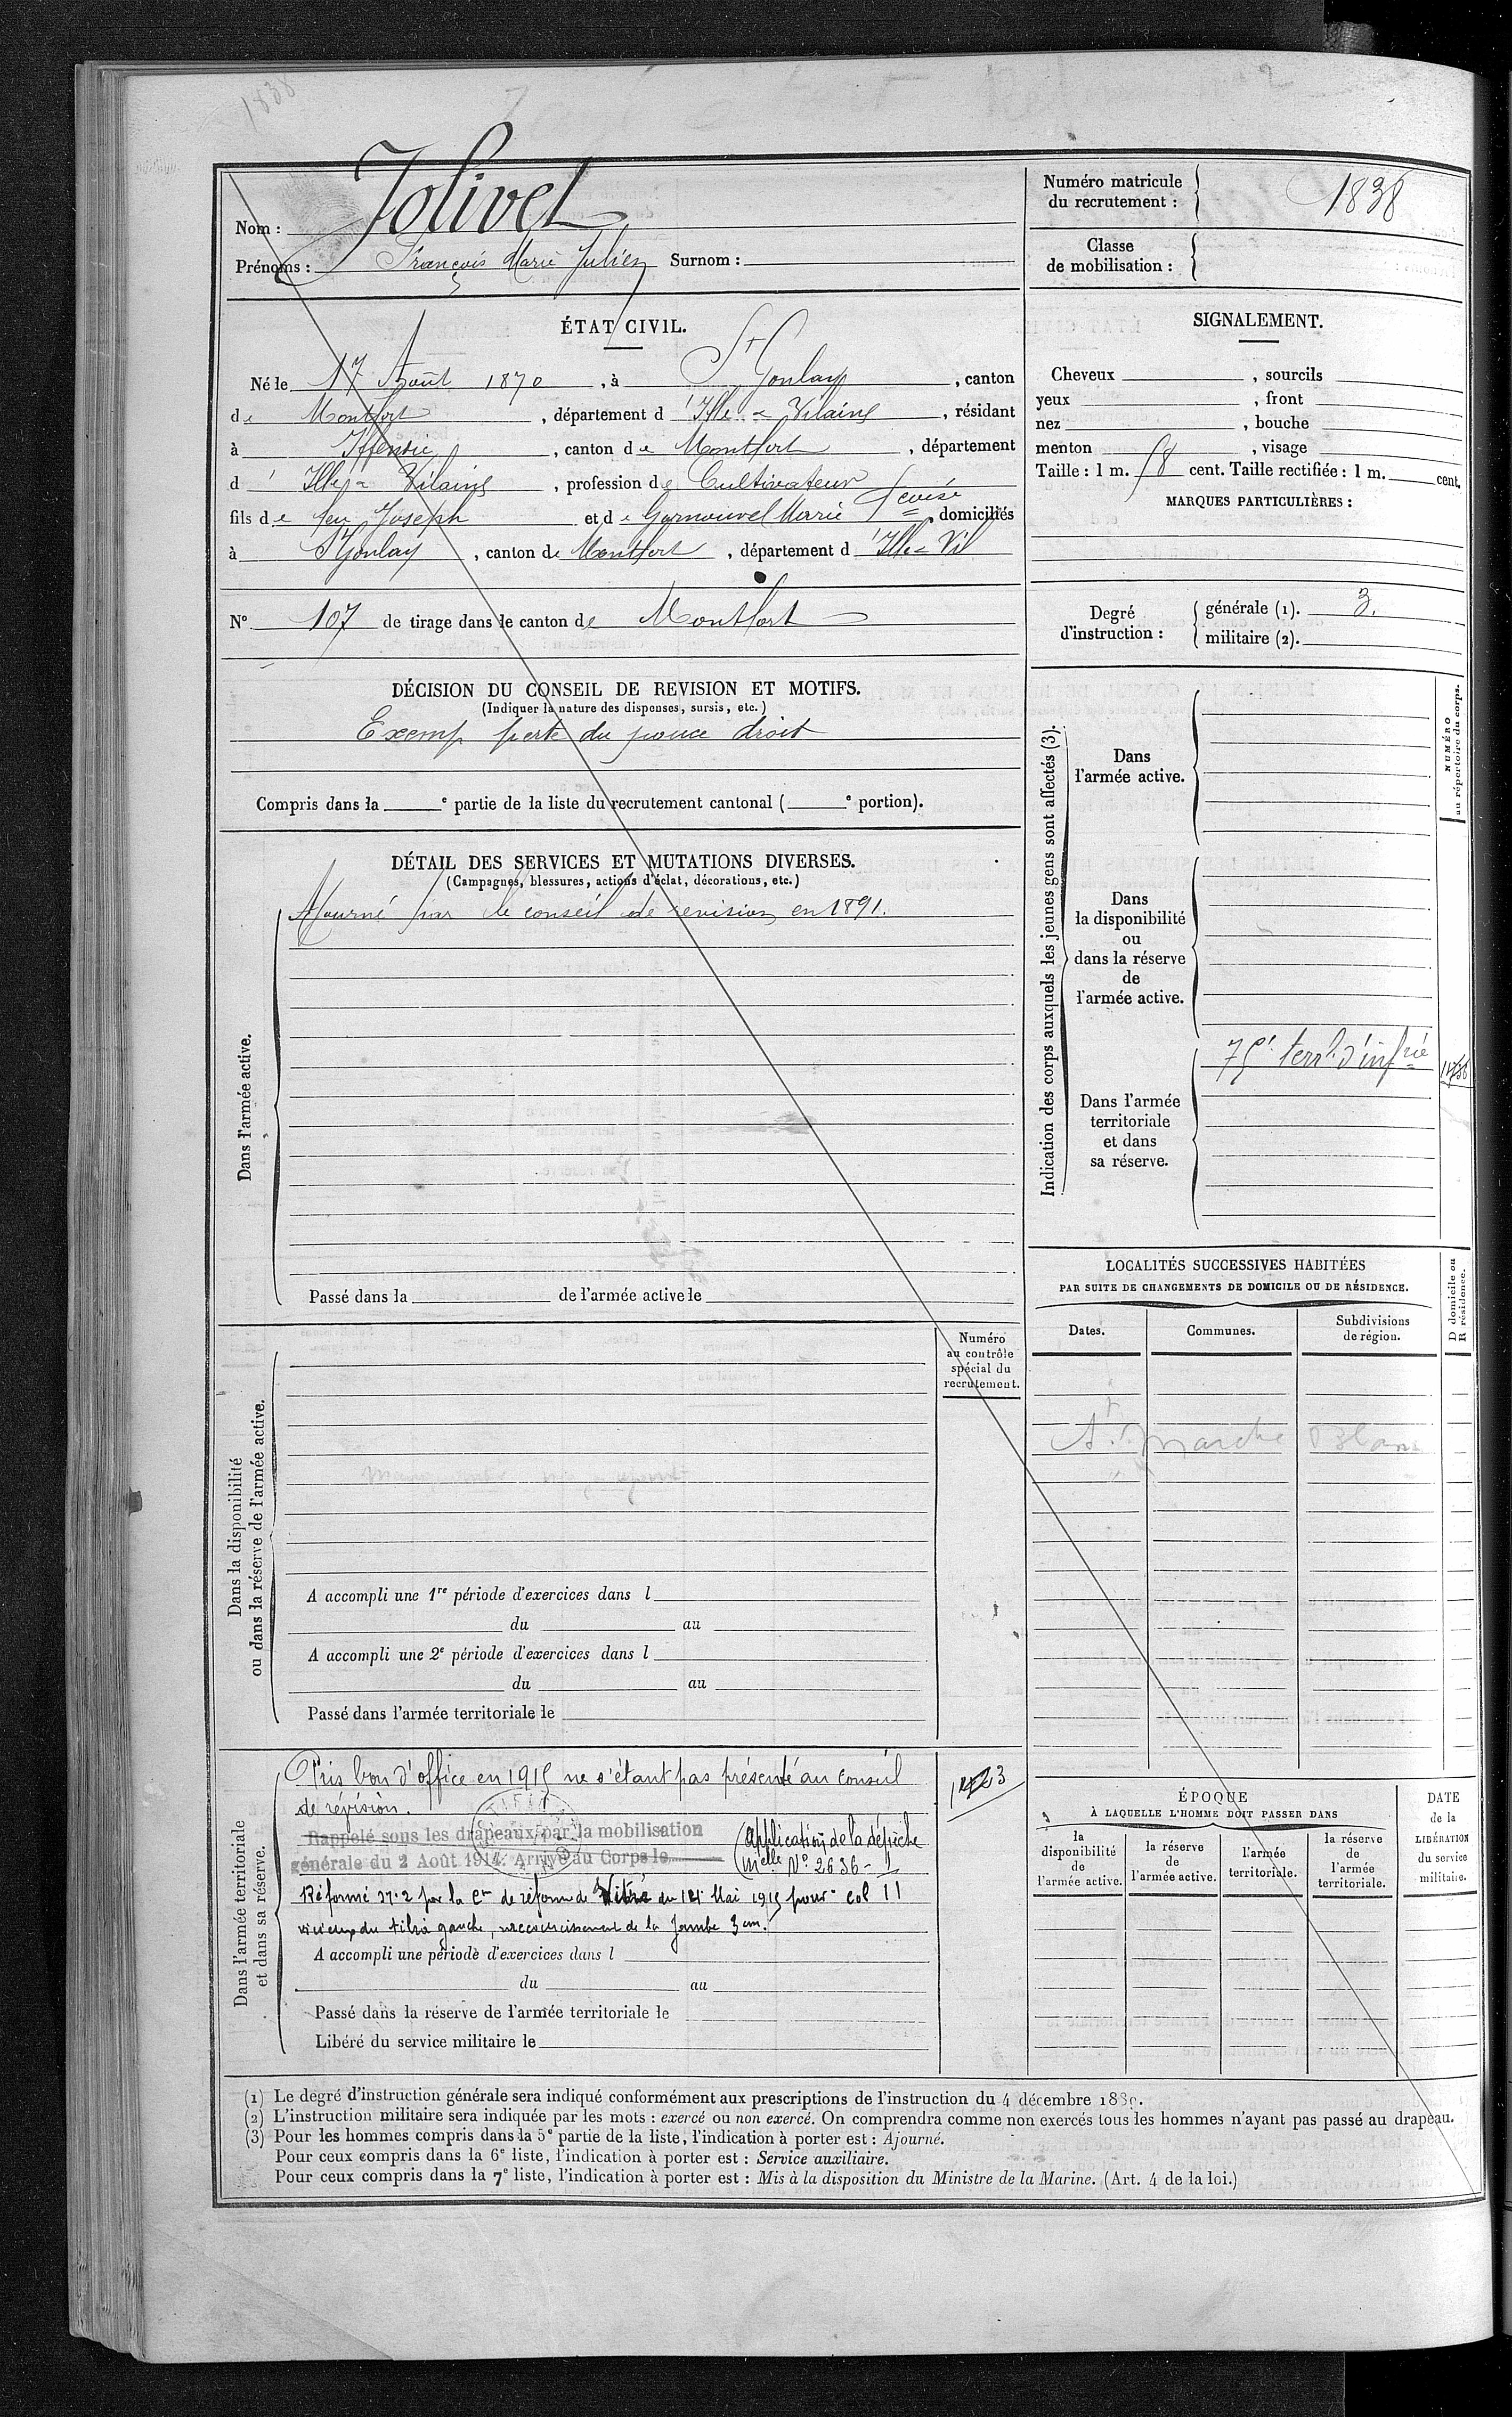 1838
Nom : Jolivet
Prénoms : François Marie Julien Surnom :
Numéro matricule
du recrutement : 1838
Classe
de mobilisation :
ÉTAT CIVIL.
Né le 17 Août 1870, à St Gonlay, canton
de Montfort, département d'Ille & Vilaine, résidant
à Iffendic, canton de Montfort, département
d'Ille & Vilaine, profession de Cultivateur
fils de feu Joseph et de Garnouvel Marie Fcoise, domiciliés
à St Gonlay, canton de Montfort, département d'Ille & Vil
No 107 de tirage dans le canton de Montfort
SIGNALEMENT.
Cheveux , sourcils
yeux , front
nez , bouche
menton , visage
Taille : 1 m. 58 cent. Taille rectifiée : 1 m. cent.
MARQUES PARTICULIÈRES :
Degré
d'instruction :
générale (1). 3.
militaire (2).
DÉCISION DU CONSEIL DE REVISION ET MOTIFS.
(Indiquer la nature des dispenses, sursis, etc.)
Exemp perte du pouce droit
Compris dans la e partie de la liste du recrutement cantonal ( e portion).
DÉTAIL DES SERVICES ET MUTATIONS DIVERSES.
(Campagnes, blessures, actions d'éclat, décorations, etc.)
Dans l'armée active.
Ajourné par le conseil de revision en 1891.
Passé dans la de l'armée active le
Indication des corps auxquels les jeunes gens sont affectés (3).
NUMÉRO
au répertoire du corps.
Dans
l'armée active.
Dans
la disponibilité
ou
dans la réserve
de
l'armée active.
Dans l'armée
territoriale
et dans
sa réserve.
75e terrl d'infrie
LOCALITÉS SUCCESSIVES HABITÉES
PAR SUITE DE CHANGEMENTS DE DOMICILE OU DE RÉSIDENCE.
Dates.
Communes.
Subdivisions
de région.
D domicile ou
R résidence.
Numéro
au contrôle
spécial du
recrutement.
Dans la disponibilité
ou dans la réserve de l'armée active.
A accompli une 1re période d'exercices dans l
du au
A accompli une 2e période d'exercices dans l
du au
Passé dans l'armée territoriale le
Dans l'armée territoriale
et dans sa réserve.
Pris bon d'office en 1915 ne s'étant pas présenté au conseil
de révision.
Rappelé sous les drapeaux par la mobilisation
générale du 2 Août 1914. Arrivé au Corps le
(Application de la dépêche
melle No 2636-
Réformé no 2 par la Con de réforme de Vitré du 12 Mai 1915 pour cal
vicieux du tibia gauche, raccourcissement de la jambe 3 cm.
A accompli une période d'exercices dans l
du au
Passé dans la réserve de l'armée territoriale le
Libéré du service militaire le
ÉPOQUE
À LAQUELLE L'HOMME DOIT PASSER DANS
la
disponibilité
de
l'armée active.
la réserve
de
l'armée active.
l'armée
territoriale.
la réserve
de
l'armée
territoriale.
DATE
de la
LIBÉRATION
du service
militaire.
(1) Le degré d'instruction générale sera indiqué conformément aux prescriptions de l'instruction du 4 décembre 1889.
(2) L'instruction militaire sera indiquée par les mots : exercé ou non exercé. On comprendra comme non exercés tous les hommes n'ayant pas passé au drapeau.
(3) Pour les hommes compris dans la 5e partie de la liste, l'indication à porter est : Ajourné.
Pour ceux compris dans la 6e liste, l'indication à porter est : Service auxiliaire.
Pour ceux compris dans la 7e liste, l'indication à porter est : Mis à la disposition du Ministre de la Marine. (Art. 4 de la loi.)